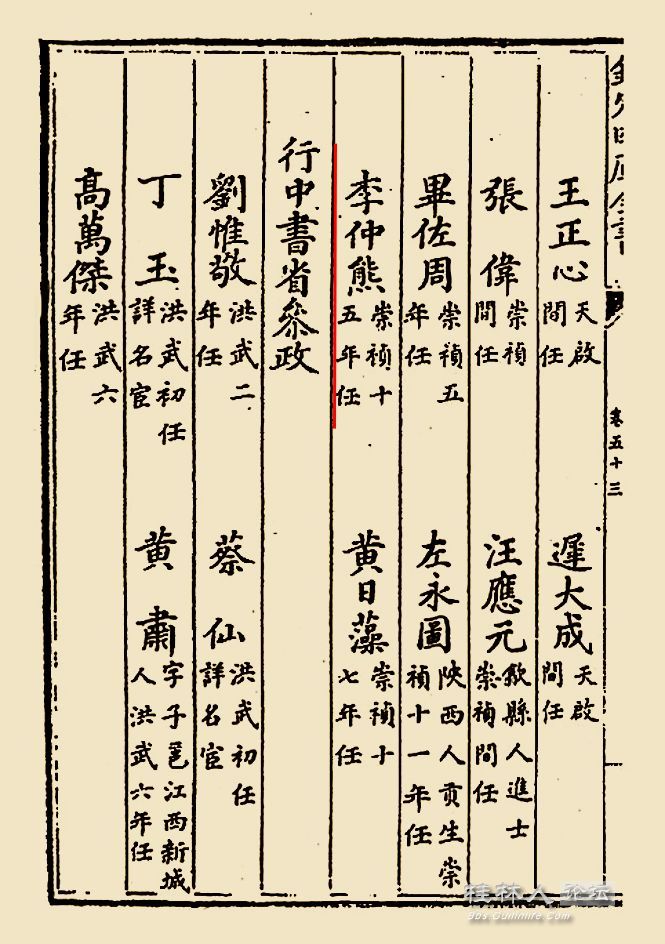 欽定四庫全書
卷五十三
王正心 天啟間任 遲大成 天啟間任
張偉 崇禎間任 汪應元 歙縣人進士崇禎間任
畢佐周 崇禎五年任 左永圖 陜西人貢生崇禎十一年任
李仲熊 崇禎十五年任 黃日藻 崇禎十七年任
行中書省叅政
劉惟敬 洪武二年任 蔡仙 洪武初任詳名宦
丁玉 洪武初任詳名宦 黃肅 字子邕江西新城人洪武六年任
高萬傑 洪武六年任
桂林人论坛
Bbs.Guilinlife.Com